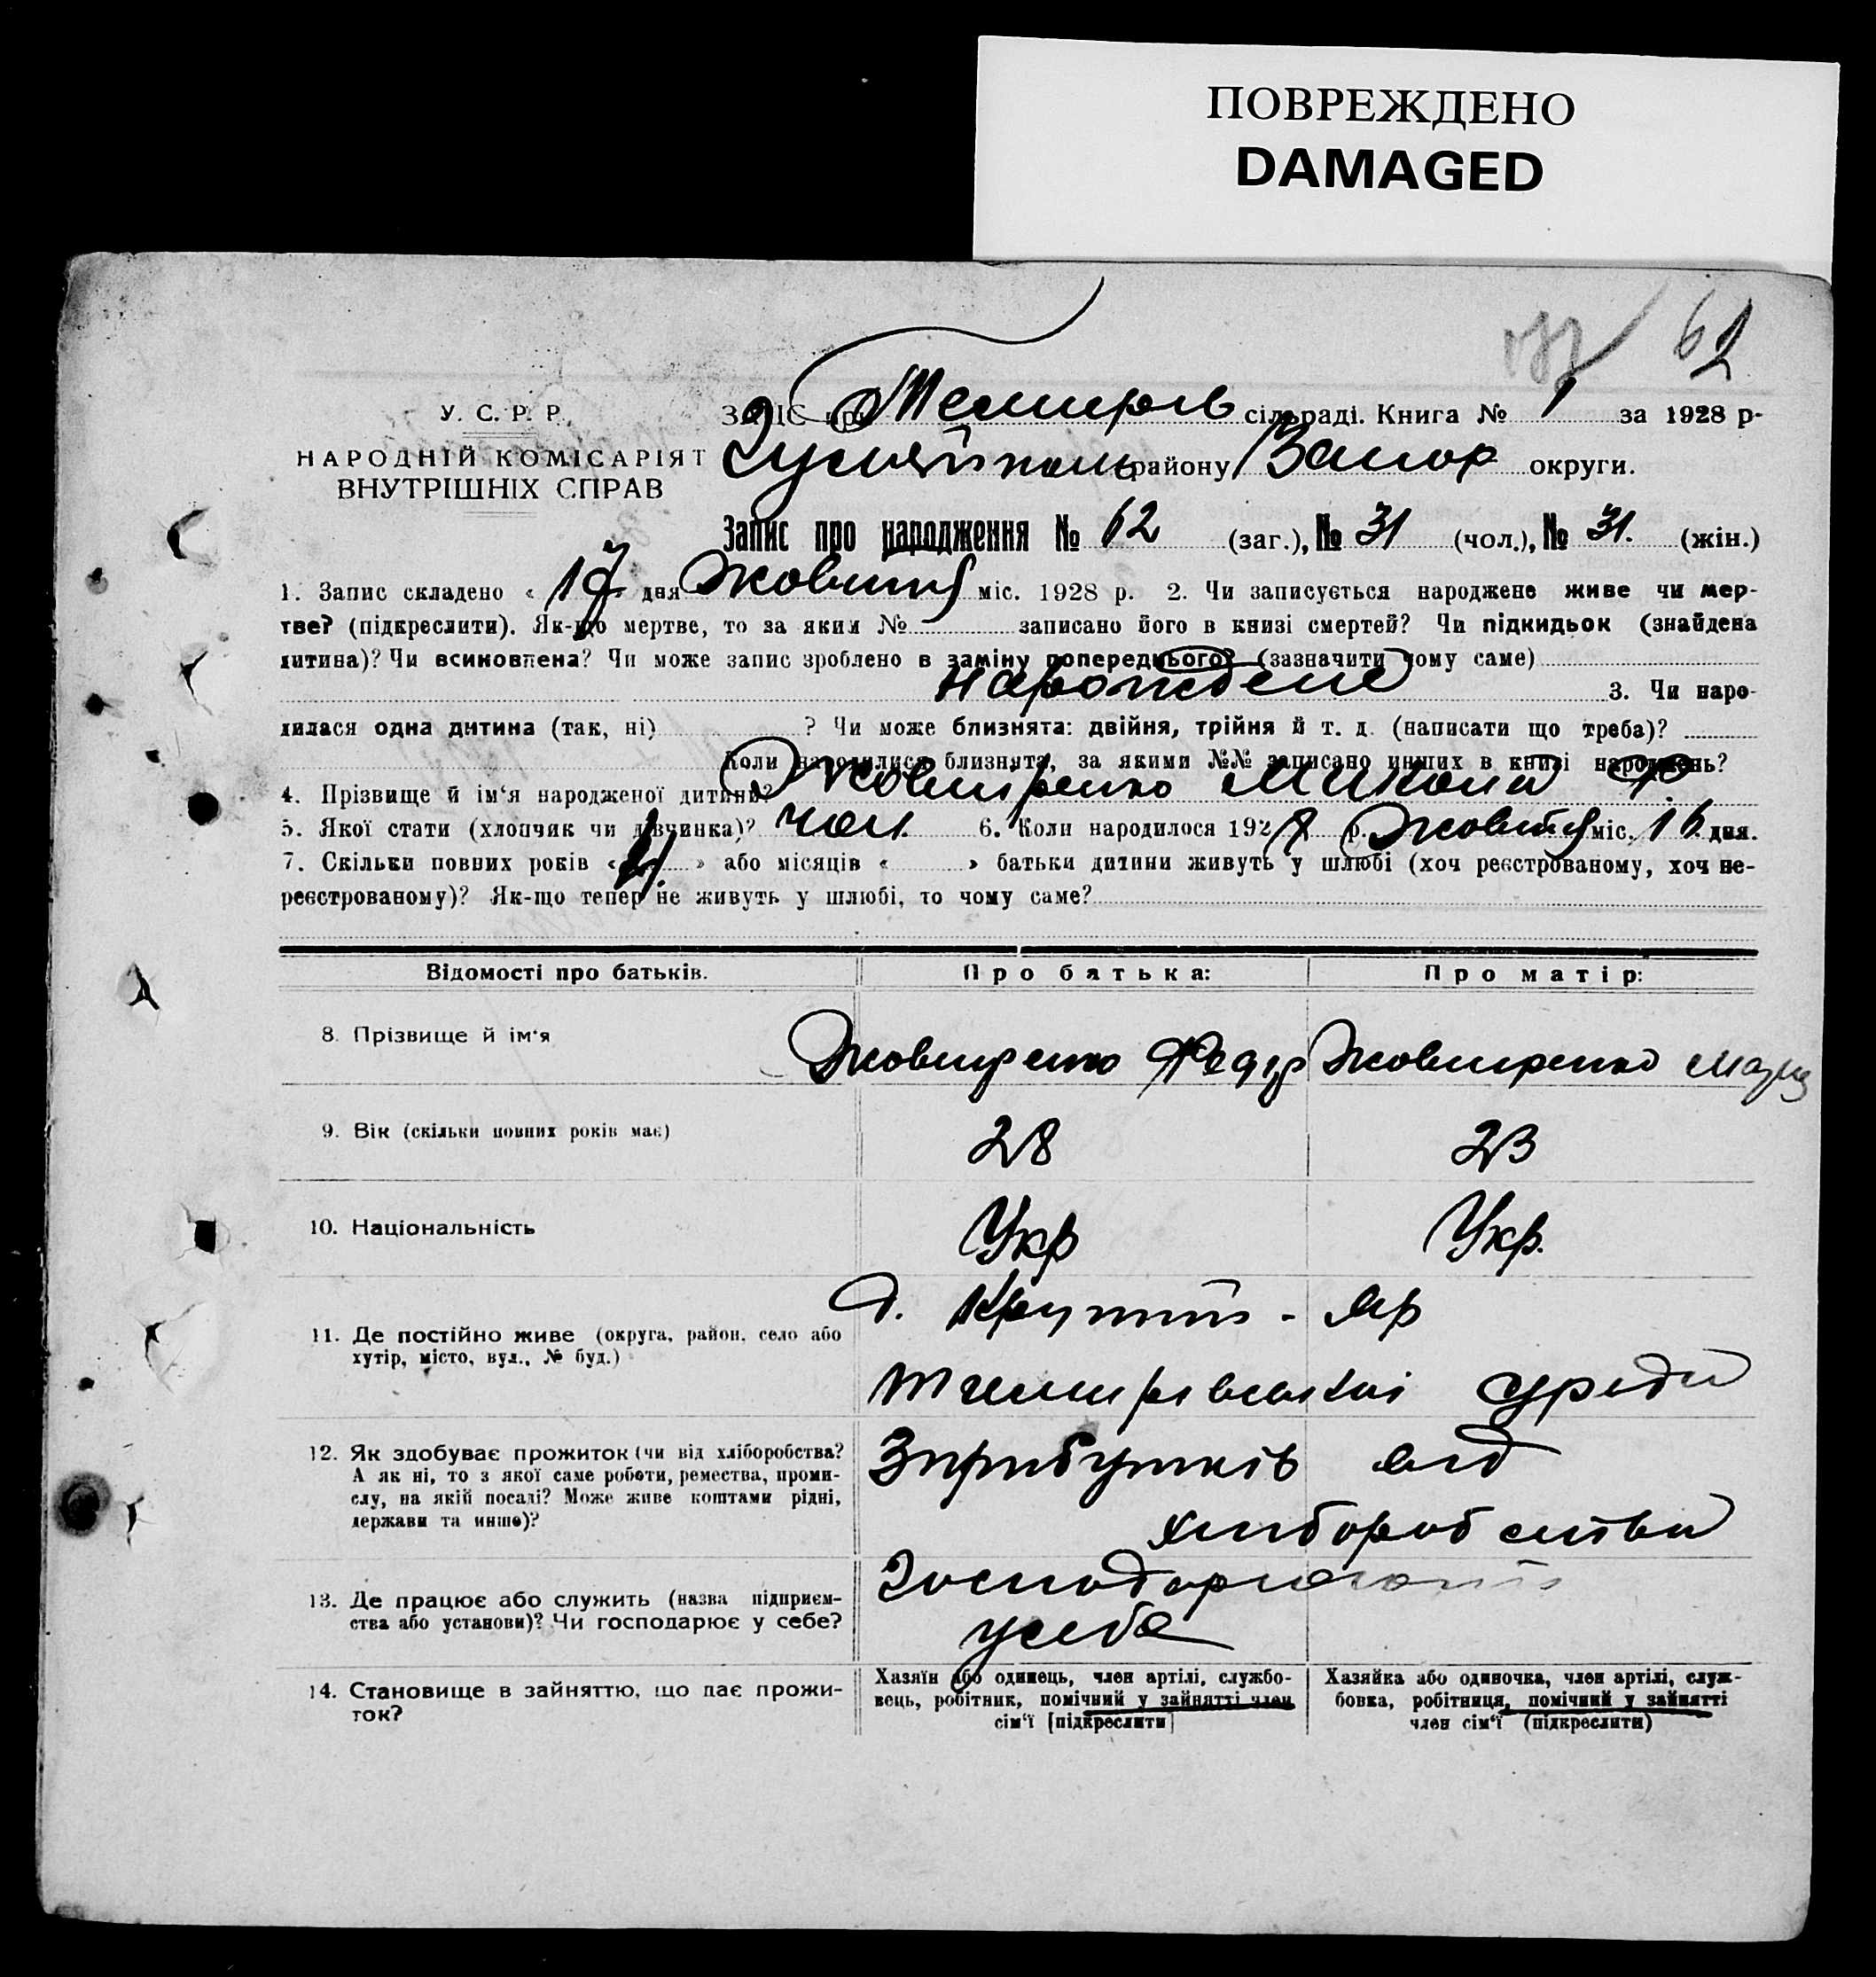 ПОВРЕЖДЕНО
DAMAGED
62
У. С. Р. Р.
НАРОДНІЙ КОМІСАРІЯТ
ВНУТРІШНІХ СПРАВ
ЗАПІС при Темирів сільраді. Книга № 1 за 1928 р.
Гуляйпіль району Запор округи.
Запис про народження № 62 (заг.), № 31 (чол.), № 31. (жін.)
1. Запис складено « 17 » дня Жовтня міс. 1928 р. 2. Чи записується народжене живе чи мер-
тве? (підкреслити). Як-що мертве, то за яким № записано його в книзі смертей? Чи підкидьок (знайдена
дитина)? Чи всиновлена? Чи може запис зроблено в заміну попереднього? (зазначити чому саме)
народжене 3. Чи наро-
дилася одна дитина (так, ні) ? Чи може близнята: двійня, трійня й т. д. (написати що треба)?
Коли народилися близнята, за якими №№ записано инших в книзі народжень?
4. Прізвище й ім'я народженої дитини? Микола Ф
5. Якої стати (хлопчик чи дівчинка)? чол. 6. Коли народилося 1928 р. Жовтня міс. 16 дня.
7. Скільки повних років « » або місяців « » батьки дитини живуть у шлюбі (хоч реєстрованому, хоч не-
реєстрованому)? Як-що тепер не живуть у шлюбі, то чому саме?
Відомості про батьків. Про батька: Про матір:
8. Прізвище й ім'я Федір
9. Вік (скільки повних років має) 28 23
10. Національність Укр Укр.
11. Де постійно живе (округа, район, село або
хутір, місто, вул., № буд.)
д. Крутий - Яр
Темирівської с/ради
12. Як здобуває прожиток (чи від хліборобства?
А як ні, то з якої саме роботи, ремества, проми-
слу, на якій посаді? Може живе коштами рідні,
держави та инше)?
З прибутків від
хліборобства
13. Де працює або служить (назва підприєм-
ства або установи)? Чи господарює у себе?
Господарюють
у себе
14. Становище в зайняттю, що дає прожи-
ток?
Хазяїн або одинець, член артілі, службо-
вець, робітник, помічний у зайнятті член
сім'ї [підкреслити]
Хазяйка або одиночка, член артілі, служ-
бовка, робітниця, помічний у зайнятті
член сім'ї (підкреслити)